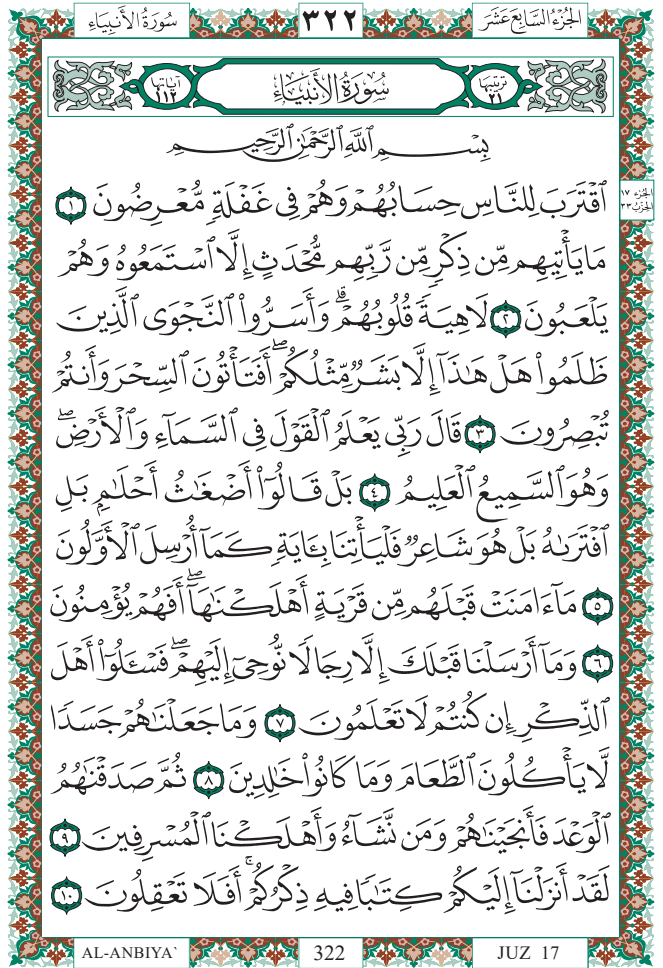 الجُزْءُ السَّابِعَ عَشَرَ ٣٢٢ سُورَةُ الأَنبِيَاءِ
ترتيبها ٢١ سُورَةُ الأَنبِيَاءِ آياتها ١١٢
بِسْمِ ٱللَّهِ ٱلرَّحْمَٰنِ ٱلرَّحِيمِ
ٱقْتَرَبَ لِلنَّاسِ حِسَابُهُمْ وَهُمْ فِى غَفْلَةٍ مُّعْرِضُونَ ١
الجزء ١٧
الحزب ٣٣
مَا يَأْتِيهِم مِّن ذِكْرٍ مِّن رَّبِّهِم مُّحْدَثٍ إِلَّا ٱسْتَمَعُوهُ وَهُمْ
يَلْعَبُونَ ٢ لَاهِيَةً قُلُوبُهُمْ ۗ وَأَسَرُّوا۟ ٱلنَّجْوَى ٱلَّذِينَ
ظَلَمُوا۟ هَلْ هَٰذَآ إِلَّا بَشَرٌ مِّثْلُكُمْ ۖ أَفَتَأْتُونَ ٱلسِّحْرَ وَأَنتُمْ
تُبْصِرُونَ ٣ قَالَ رَبِّى يَعْلَمُ ٱلْقَوْلَ فِى ٱلسَّمَآءِ وَٱلْأَرْضِ ۖ
وَهُوَ ٱلسَّمِيعُ ٱلْعَلِيمُ ٤ بَلْ قَالُوٓا۟ أَضْغَٰثُ أَحْلَٰمٍۭ بَلِ
ٱفْتَرَىٰهُ بَلْ هُوَ شَاعِرٌ فَلْيَأْتِنَا بِـَٔايَةٍ كَمَآ أُرْسِلَ ٱلْأَوَّلُونَ
٥ مَآ ءَامَنَتْ قَبْلَهُم مِّن قَرْيَةٍ أَهْلَكْنَٰهَآ ۖ أَفَهُمْ يُؤْمِنُونَ
٦ وَمَآ أَرْسَلْنَا قَبْلَكَ إِلَّا رِجَالًا نُّوحِىٓ إِلَيْهِمْ ۖ فَسْـَٔلُوٓا۟ أَهْلَ
ٱلذِّكْرِ إِن كُنتُمْ لَا تَعْلَمُونَ ٧ وَمَا جَعَلْنَٰهُمْ جَسَدًا
لَّا يَأْكُلُونَ ٱلطَّعَامَ وَمَا كَانُوا۟ خَٰلِدِينَ ٨ ثُمَّ صَدَقْنَٰهُمُ
ٱلْوَعْدَ فَأَنجَيْنَٰهُمْ وَمَن نَّشَآءُ وَأَهْلَكْنَا ٱلْمُسْرِفِينَ ٩
لَقَدْ أَنزَلْنَآ إِلَيْكُمْ كِتَٰبًا فِيهِ ذِكْرُكُمْ ۖ أَفَلَا تَعْقِلُونَ ١٠
AL-ANBIYA` 322 JUZ 17